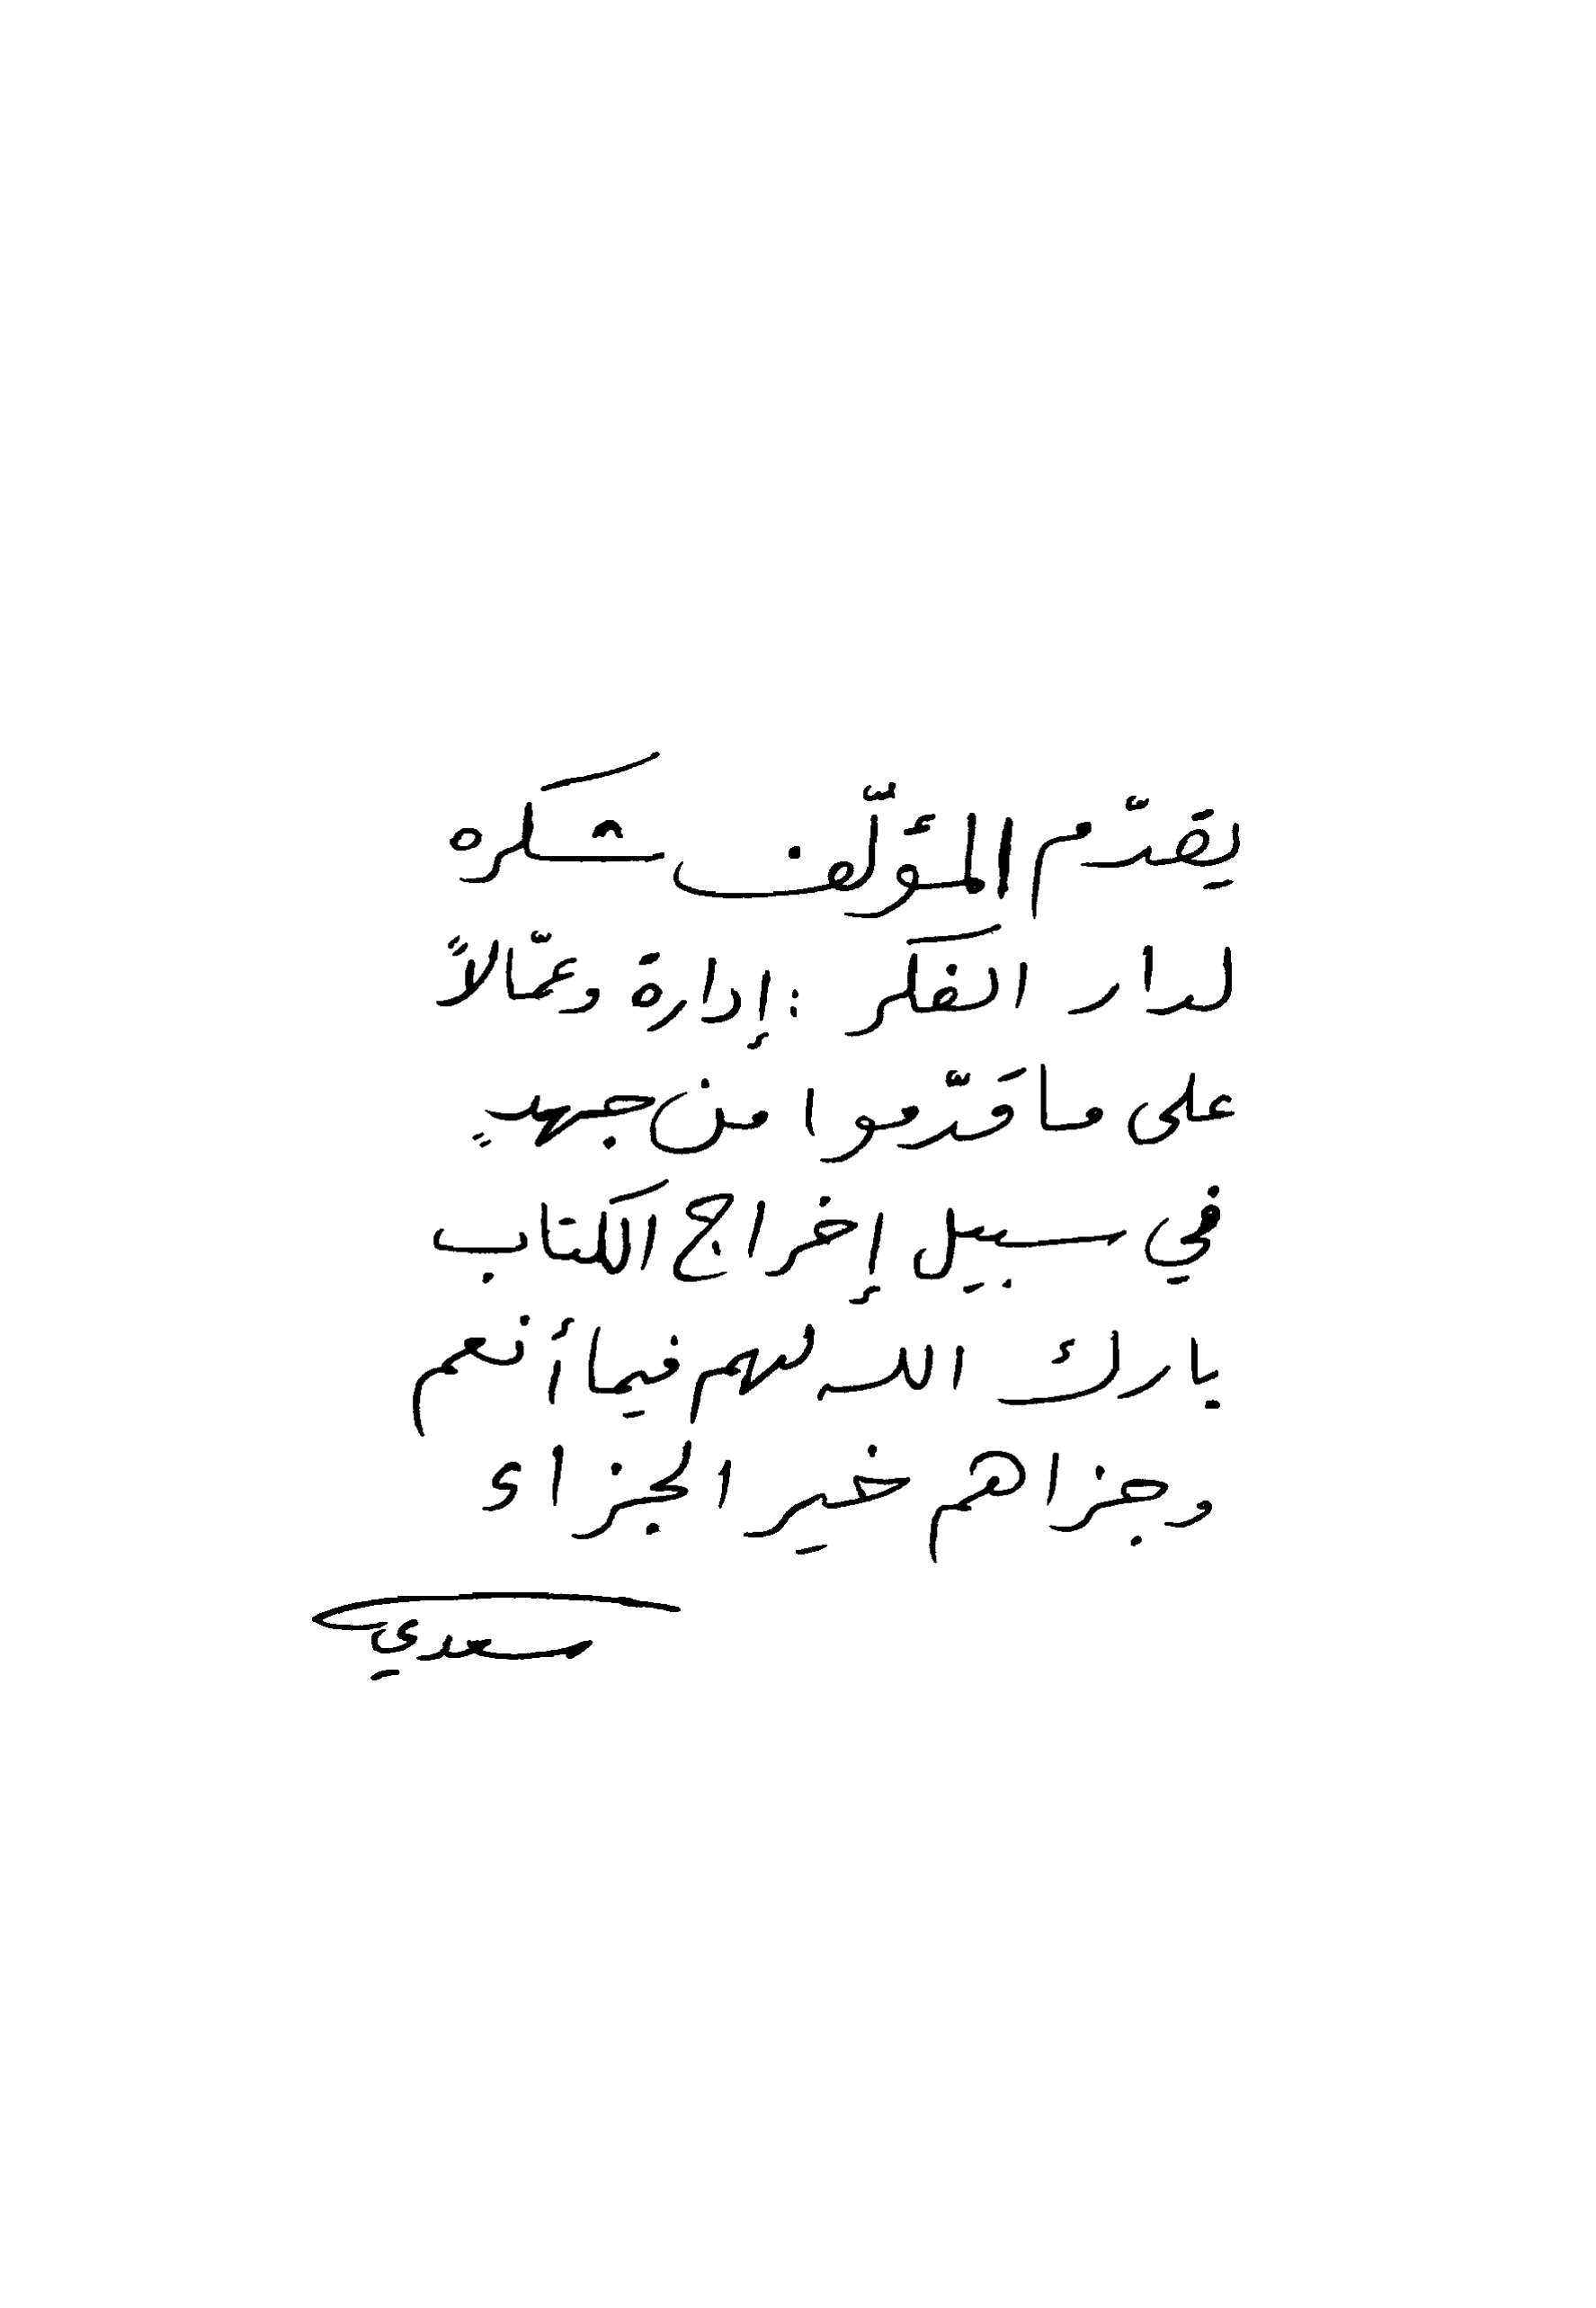 يقدّم المؤلّف شكره
لدار الفكر : إدارة وعمّالاً
على ما قَدّموا من جهدٍ
في سبيل إخراج الكتاب
بارك الله لهم فيما أنعم
وجزاهم خير الجزاء
سعدي